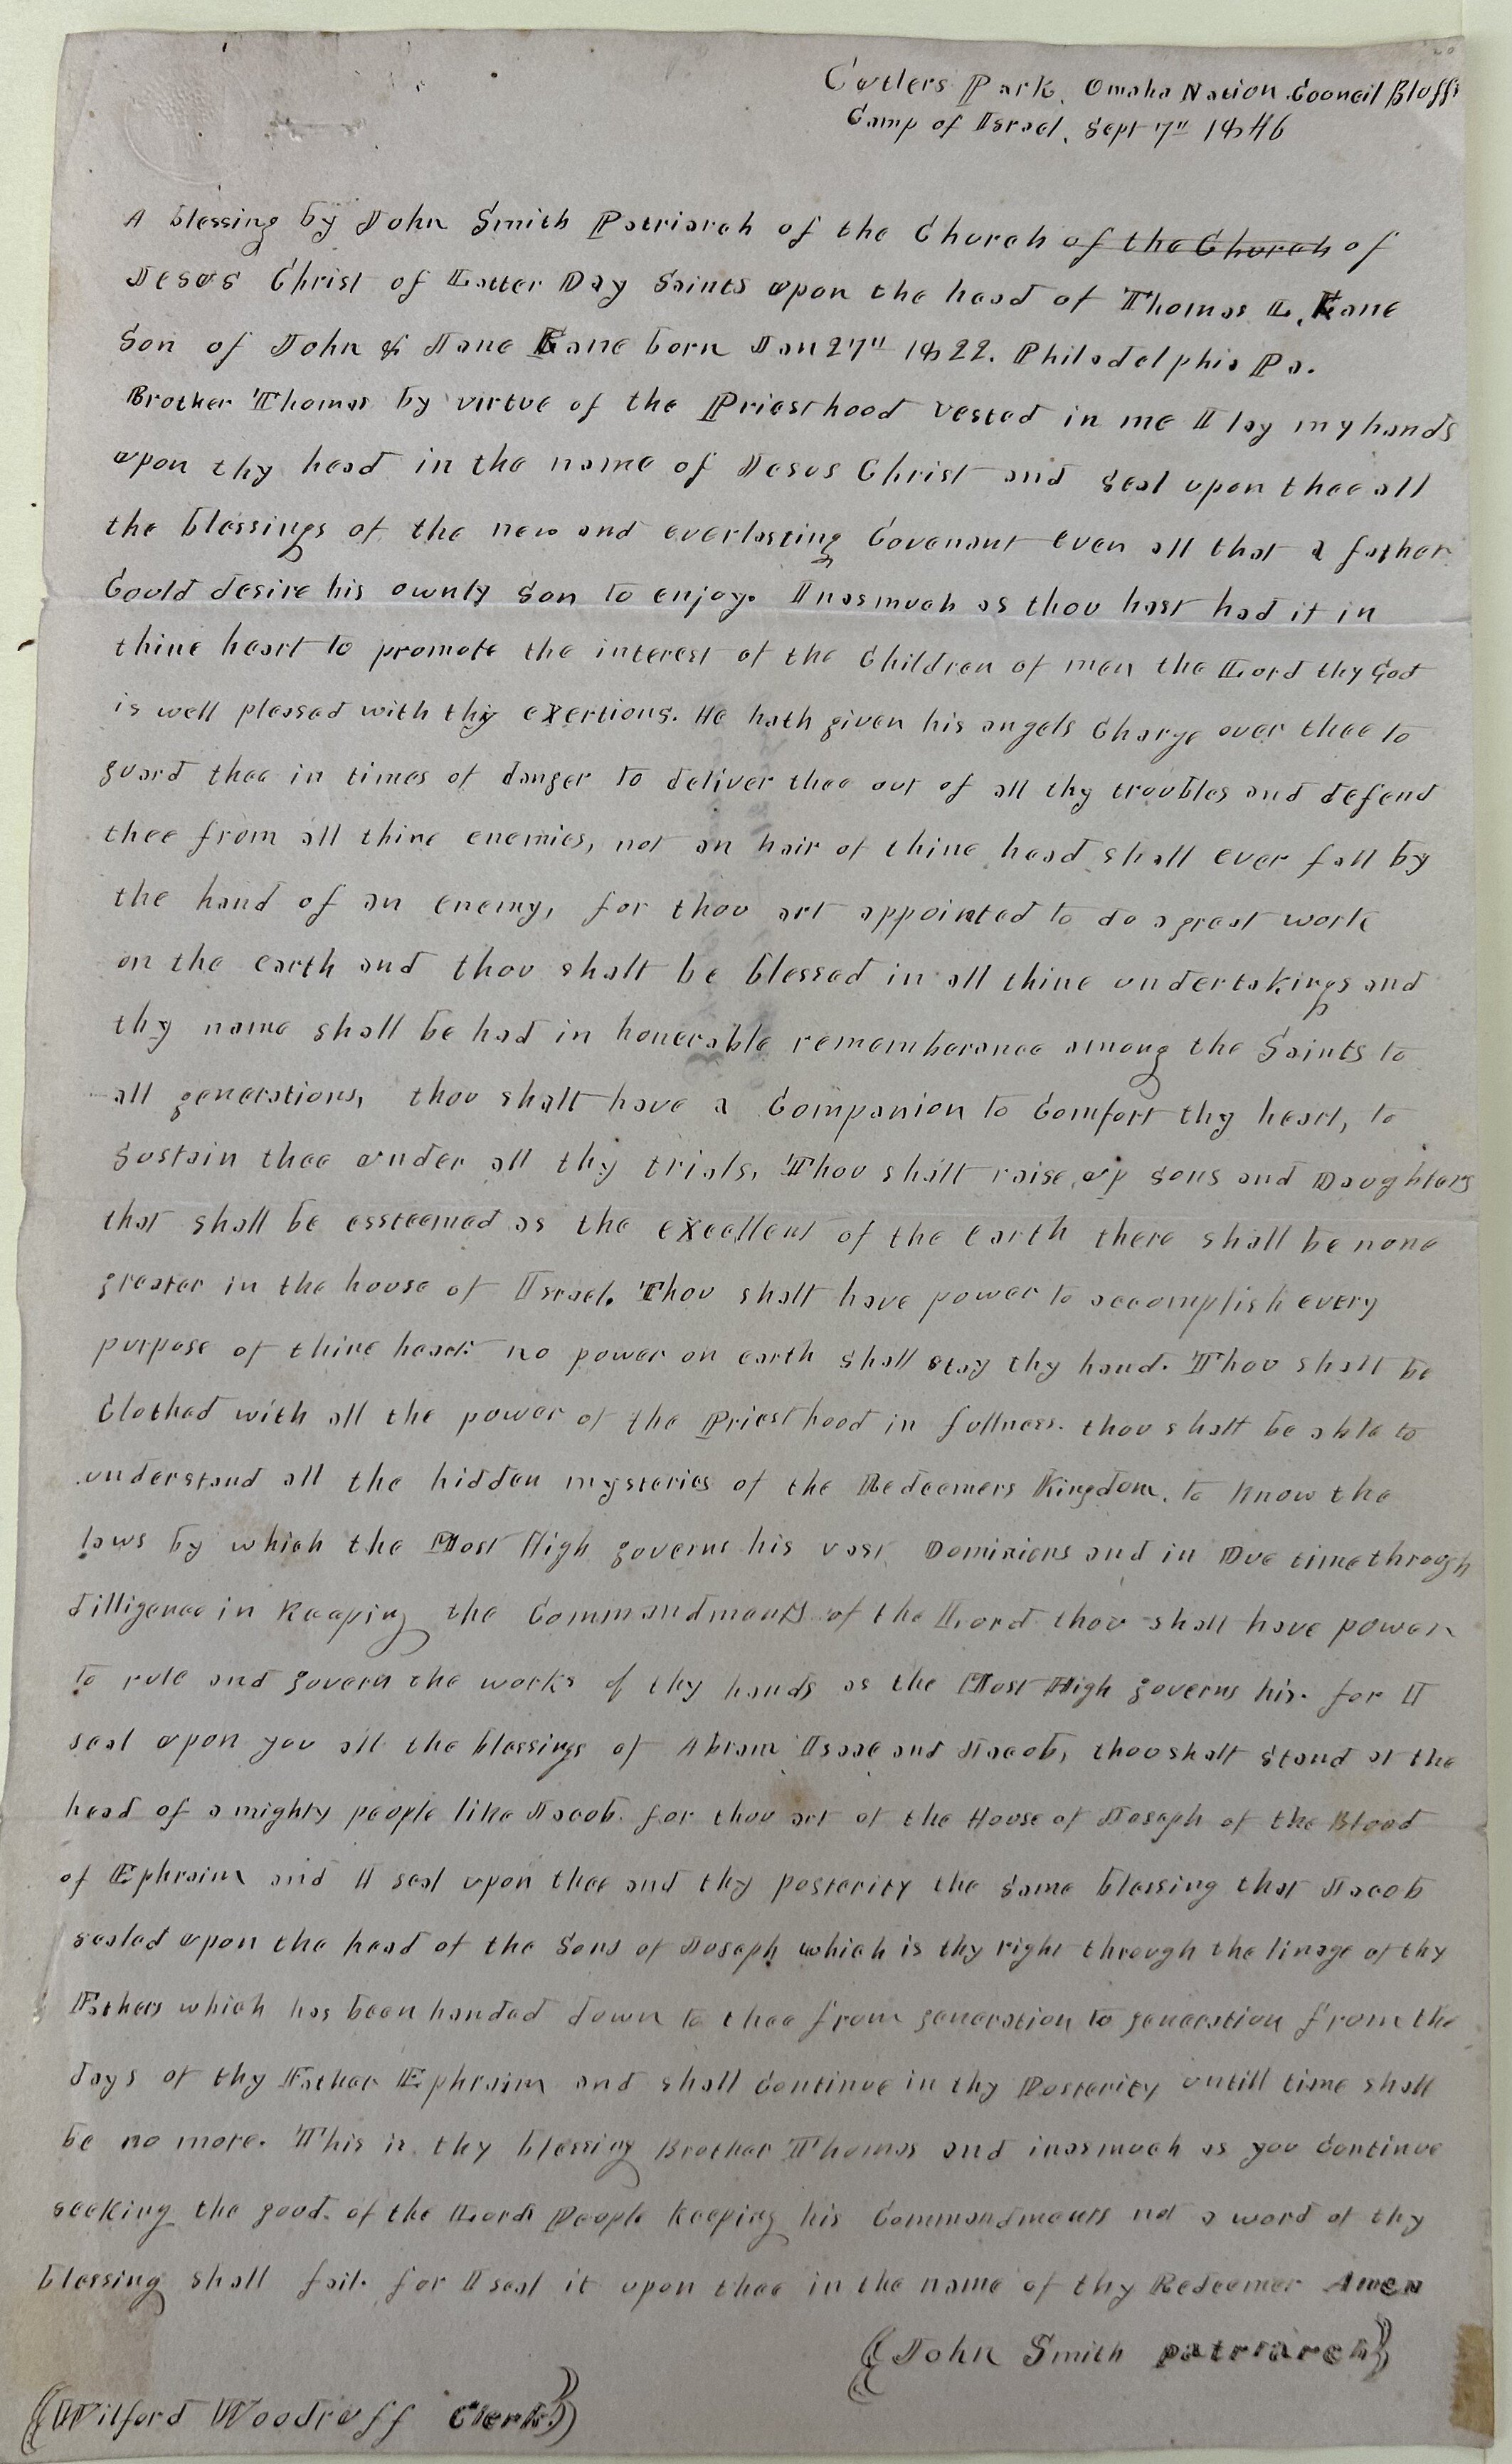 Cutlers Park, Omaha Nation Council Bluffs
Camp of Israel, Sept 7" 1846
A blessing by John Smith Patriarch of the Church of the Church of
Jesus Christ of Latter Day Saints upon the head of Thomas L. Kane
Son of John & Jane Kane born Jan 27" 1822. Philadelphia Pa.
Brother Thomas by virtue of the Priesthood vested in me I lay my hands
upon thy head in the name of Jesus Christ and seal upon thee all
the blessings of the new and everlasting Covenant even all that a father
Could desire his ownly Son to enjoy. Inasmuch as thou hast had it in
thine heart to promote the interest of the Children of men the Lord thy God
is well pleased with thy exertions. He hath given his angels Charge over thee to
guard thee in times of danger to deliver thee out of all thy troubles and defend
thee from all thine enemies, not an hair of thine head shall ever fall by
the hand of an enemy, for thou art appointed to do a great work
on the earth and thou shalt be blessed in all thine undertakings and
thy name shall be had in honerable rememberance among the Saints to
all generations, thou shalt have a Companion to Comfort thy heart, to
Sustain thee under all thy trials, Thou shalt raise up sons and Daughters
that shall be essteemed as the excellent of the earth there shall be none
greater in the house of Israel. Thou shalt have power to accomplish every
purpose of thine heart: no power on earth shall stay thy hand. Thou shalt be
Clothed with all the power of the Priesthood in fullness. thou shalt be able to
understand all the hidden mysteries of the Redeemers Kingdom, to know the
laws by which the Most High governs his vast Dominions and in Due time through
dilligence in Keeping the Commandments of the Lord thou shalt have power
to rule and govern the works of thy hands as the Most High governs his. for I
seal upon you all the blessings of Abram Isaac and Jacob, thou shalt stand at the
head of a mighty people like Jacob. for thou art of the House of Joseph of the Blood
of Ephraim and I seal upon thee and thy posterity the same blessing that Jacob
sealed upon the head of the Sons of Joseph which is thy right through the linage of thy
Fathers which has been handed down to thee from generation to generation from the
days of thy Father Ephraim and shall Continue in thy Posterity untill time shall
be no more. This is thy blessing Brother Thomas and inasmuch as you Continue
seeking the good of the Lords People Keeping his Commandments not a word of thy
blessing shall fail. for I seal it upon thee in the name of thy Redeemer Amen
((John Smith patriarch))
((Wilford Woodruff Clerk.))